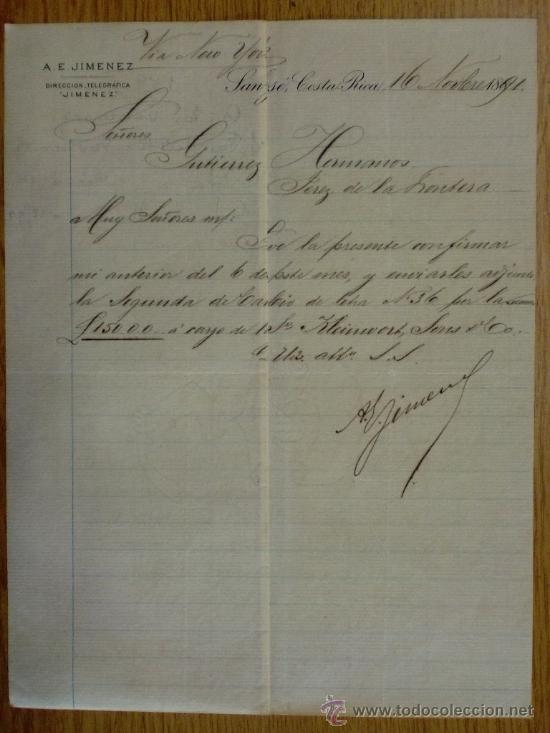 Via New York
A. E. JIMENEZ
DIRECCION TELEGRÁFICA
"JIMENEZ"
San José, Costa Rica, 16 Novbre 1891.
Señores
Gutierrez Hermanos
Jerez de la Frontera
Muy Señores
la presente confirmar
mi anterior del 6 de este mes, y enviarles adjunta
la Segunda de Cambio de letra Nº 36 por la suma
£150.00. á cargo de Kleinwort, Sons & Co.
S. S.
A. E. Jimenez
todocoleccion.net